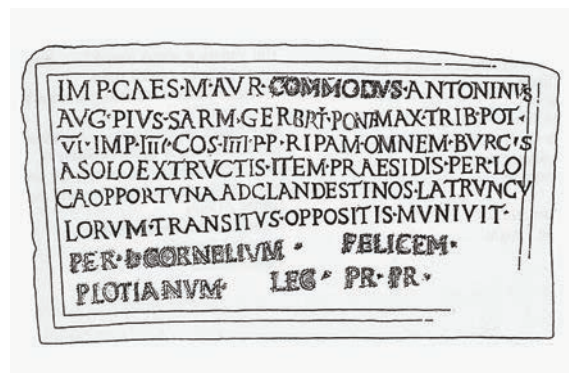 IMP·CAES·M·AVR·COMMODVS·ANTONINVS
AVG·PIVS·SARM·GER·BRIT·PONT·MAX·TRIB·POT·
VI·IMP·IIII·COS·IIII·PP·RIPAM·OMNEM·BVRGIS
ASOLO EXTRVCTIS·ITEM·PRAESIDIS·PER·LO
CAOPPORTVNAADCLANDESTINOS·LATRVNCV
LORVM·TRANSITVS·OPPOSITIS·MVNIVIT·
PER·L·CORNELIVM· FELICEM·
PLOTIANVM· LEG· PR·PR·